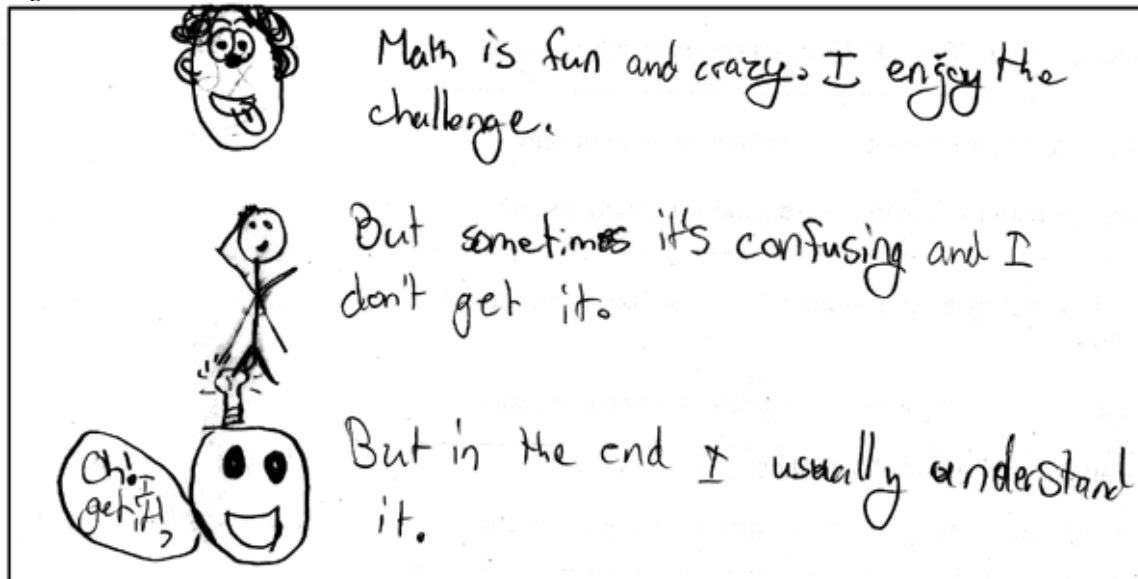 Math is fun and crazy. I enjoy the
challenge.
But sometimes it's confusing and I
don't get it.
Oh! I
get it!
But in the end I usually understand
it.